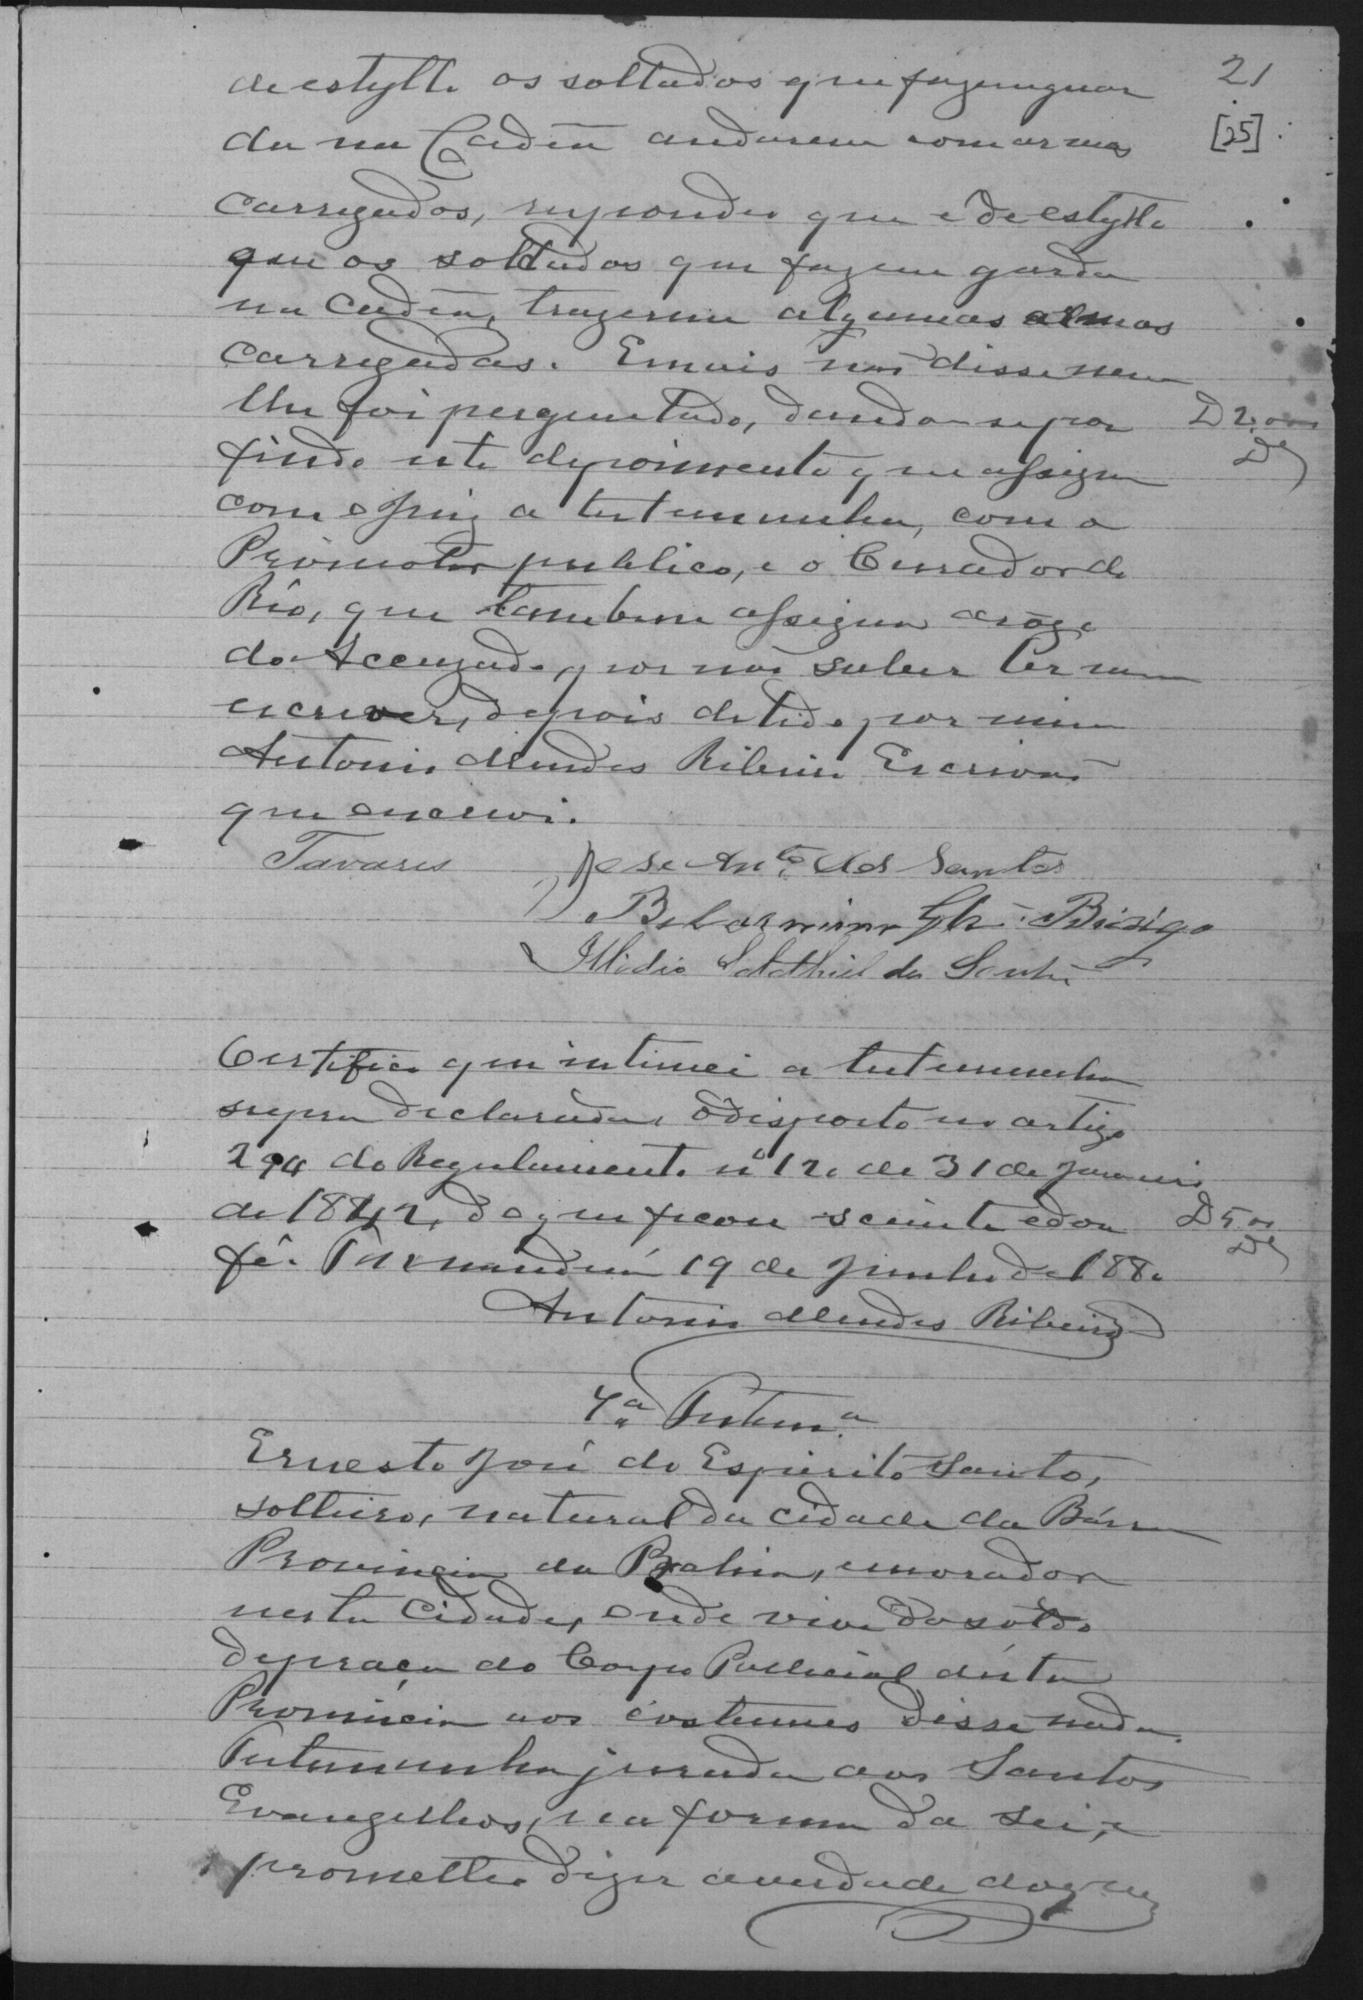 21
[25]
de estyllo os soldados que fazem guar
da na Cadêa andarem com armas
carregadas, respondeo que é de estyllo
que os soldados que fazem garda
na cadêa, trazerem algumas armas
carregadas. E mais não disse nem
lhe foi perguntado, dando-se por
findo este depoimento que assigna
com o Juiz a testemunha, com o
Promotor publico, e o Curador do
Réo, que tambem assigna a rôgo
do Accuzado, por não saber ler nem
escrever, depois de lido por mim
Antonio Mendes Ribeiro Escrivão
que escrevi.
Tavares
José Antº dos Santos
Belarmino Brizigo
Illidio Salathiel dos Santos
Certifico que intimei a testemunha
supra declarada, o disposto no artigo
294 do Regulamento nº 120 de 31 de Janeiro
de 1842, do que ficou sciente e dou
fé. Parnandeú 19 de Junho de 1880
Antonio Mendes Ribeiro
4ª Testemª
Ernesto José do Espirito Santo,
solteiro, natural da cidade da Bárra
Provincia da Bahia, e morador
nesta Cidade, onde vive do sôldo
de praça do Corpo Pollicial désta
Provincia aos costumes disse nada.
Testemunha jurada aos Santos
Evangelhos, na forma da Lei, e
prometteo dizer a verdade do que